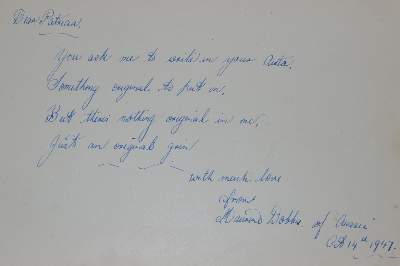 Dear Patricia,
You ask me to write in your Auto,
Something original to put in,
But theres nothing original in me,
Just an original grin
with much love
from
Dobbie of "Aussie"
Oct 14th 1947.